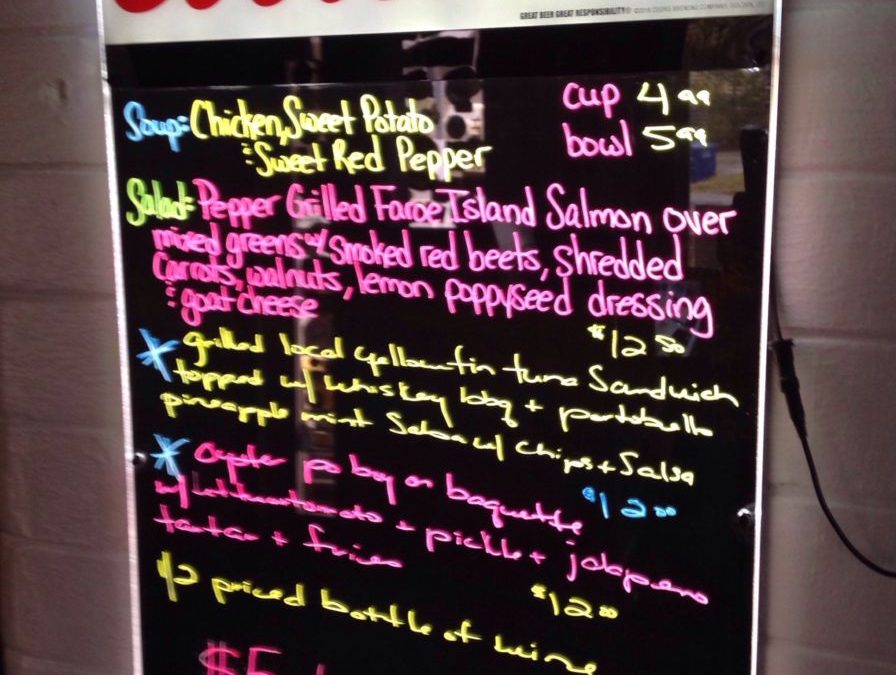 GREAT BEER GREAT RESPONSIBILITY®
Soup: Chicken, Sweet Potato cup 4 99
& Sweet Red Pepper bowl 5 99
Salad: Pepper Grilled Faroe Island Salmon over
mixed greens w/ smoked red beets, shredded
carrots, walnuts, lemon poppyseed dressing
& goat cheese $12 50
* grilled local yellowfin tuna Sandwich
topped w/ whiskey bbq + portobello
pineapple mint Salsa w/ chips + Salsa
$12 00
* Oyster po boy on baguette
w/ lettuce tomato + pickle + jalapeno
tartar + fries
$12 00
1/2 priced bottle of wine
$5